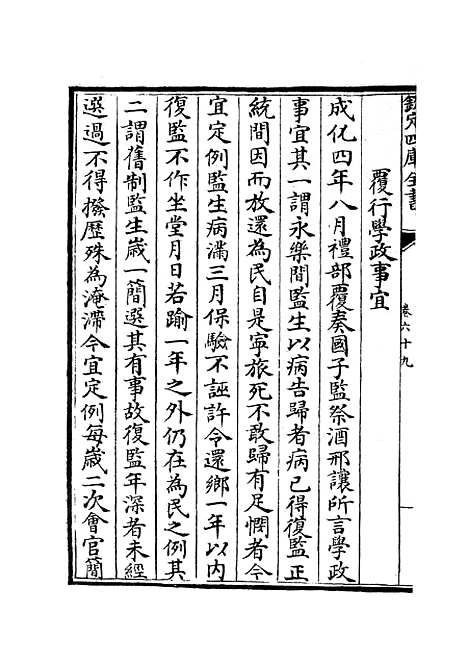 欽定四庫全書
卷六十九
覆行學政事宜
成化四年八月禮部覆奏國子監祭酒邢讓所言學政
事宜其一謂永樂間監生以病告歸者病已得復監正
統間因而放還為民自是寧旅死不敢歸有足憫者今
宜定例監生病滿三月保驗不誣許令還鄉一年以内
復監不作坐堂月日若踰一年之外仍在為民之例其
二謂舊制監生歲一簡選其有事故復監年深者未經
選過不得撥歷殊為淹滯今宜定例每歲二次會官簡